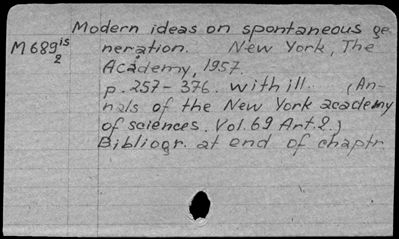 Modern ideas on spontaneous ge
M689is neration. New York, The
2 Academy, 1957.
p. 257-376. with ill. (An-
nals of the New York academy
of sciences. Vol. 69 Art. 2.)
Bibliogr. at end of chaptr.